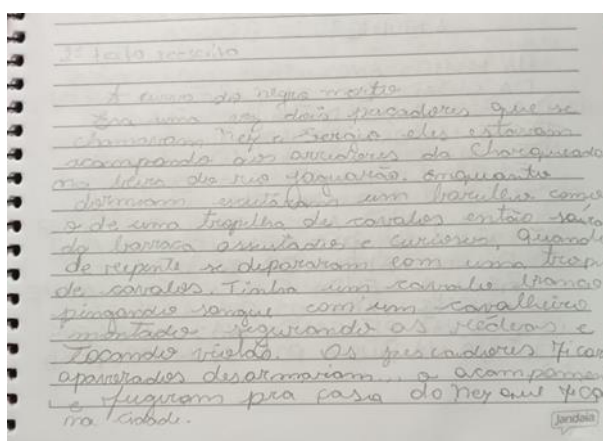 2º texto reescrito
A do negro morto
Era uma vez dois pescadores que se
chamavam Ney e Sergio eles estavam
acampando aos arredores da Charqueada
na beira do rio Jaguarão. enquanto
dormiam escutaram um barulho como
o de uma tropilha de cavalos então
da barraca assustados e curiosos, quando
de repente se depararam com uma trop
de cavalos. Tinha um cavalo branco
pingando sangue com um cavalheiro
montado segurando as rédeas e
Tocando violão. Os pescadores ficar
apavorados desarmaram o acampame
e fugiram pra casa do Ney que fico
na cidade.
Jandaia